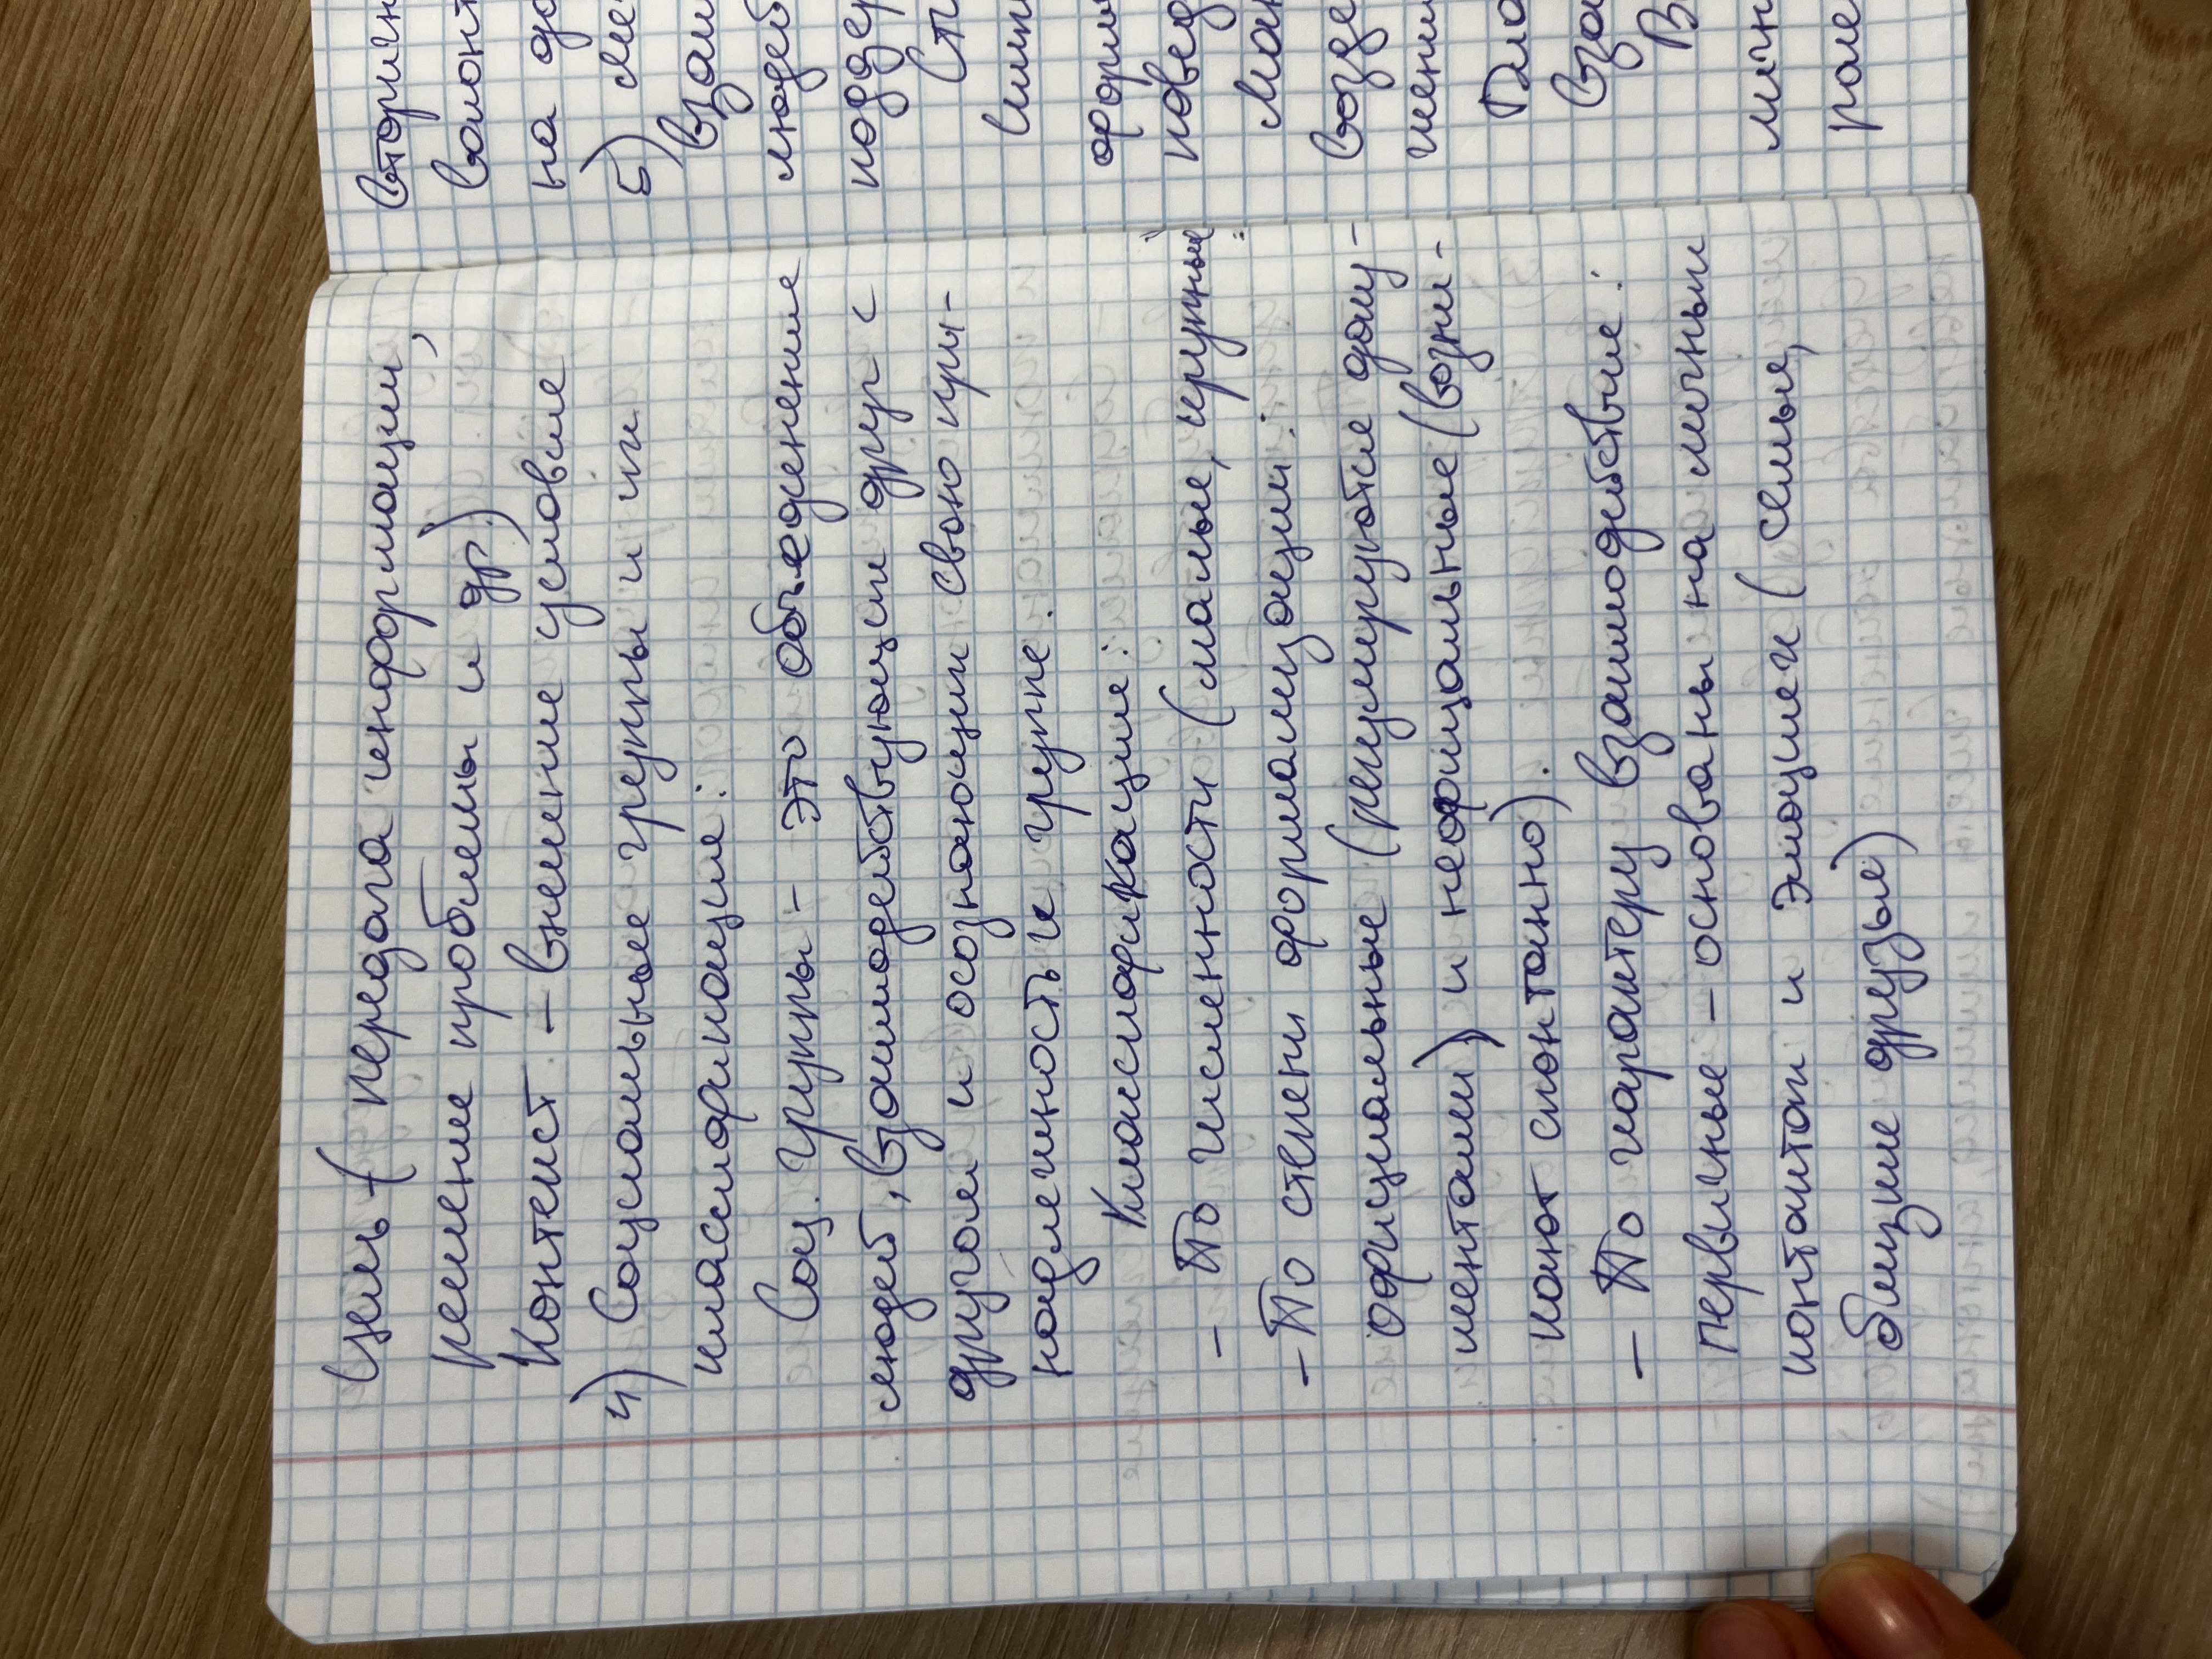 Цель – (передача информации,
решение проблемы и др)
Контекст – внешние условие
4) Социальные группы и их
классификация:
Соц. группы – это объеденение
людей, взаимодействующих друг с
другом и осознающих свою при-
надлежность к группе.
Классификация:
– По численности (малые, крупные)
– По степени формализации:
официальные (регулируются доку-
ментами) и неофициальные (возни-
кают спонтанно).
– По характеру взаимодействие:
первичные – основаны на личных
контактах и эмоциях (семья,
близкие друзья)
вторичн
на до
5) Ме
Взаи
людей
поддер
Ст
форми
повед
Ман
Возде
жени
Вза
В
личн